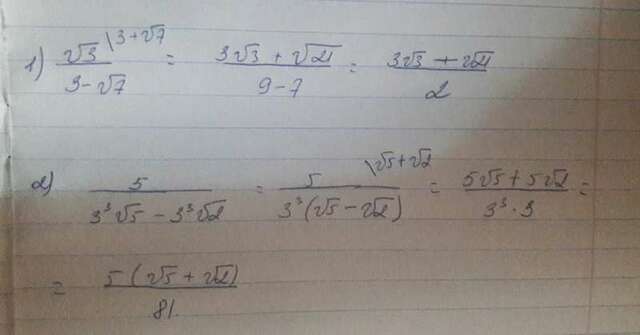 1) √3/(3-√7) \3+√7 = (3√3 + √21)/(9-7) = (3√3 + √21)/2
2) 5/(3³√5 - 3³√2) = 5/(3³(√5 - √2)) \√5+√2 = (5√5 + 5√2)/(3³·3) =
= 5(√5 + √2)/81.